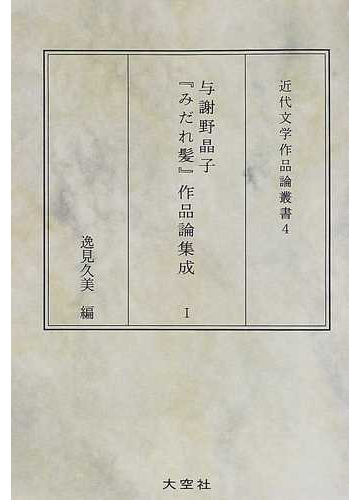 近代文学作品論叢書4
与謝野晶子
『みだれ髪』作品論集成 Ⅰ
逸見久美 編
大空社